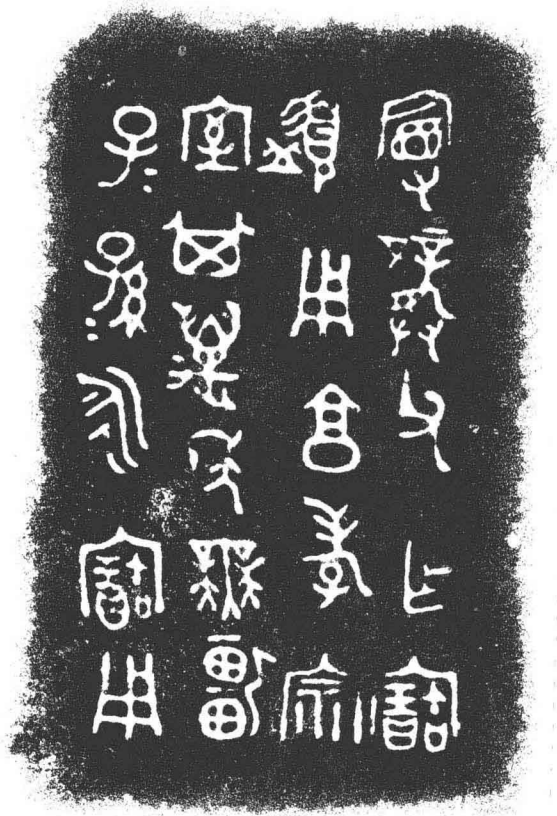 父乍寶
盨用享孝宗
室其萬年無疆
子＝孫＝永寶用